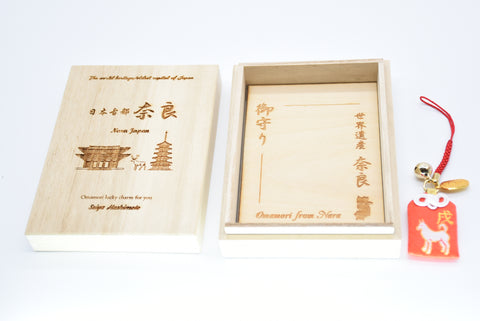 The world heritage/oldest capital of Japan
日本古都 奈良
Nara Japan
Omamori lucky charm for you
Seiya Hashimoto
御守り
世界遺産 奈良
Omamori from Nara
戌